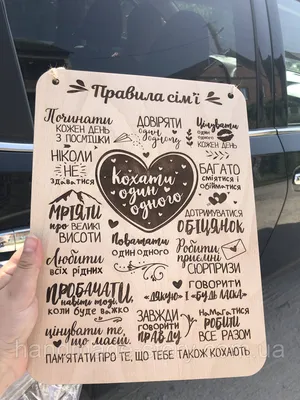 Правила сім'ї
Починати
КОЖЕН ДЕНЬ
З ПОСМІШКИ
ДОВІРЯТИ
один
одному
Цілувати
один одного
КОЖЕН ДЕНЬ
НІКОЛИ
НЕ
здаватися
Кохати
один
одного
БАГАТО
сміятися і
обійматися
МРІЯТИ
про ВЕЛИКІ
ВИСОТИ
ДОТРИМУВАТИСЯ
ОБІЦЯНОК
Поважати
один одного
Любити
всіх рідних
Робити
приємні
СЮРПРИЗИ
ПРОБАЧАТИ,
навіть тоді,
коли буде важко
ГОВОРИТИ
«ДЯКУЮ» І «БУДЬ ЛАСКА»
цінувати те,
що маєш.
ЗАВЖДИ
говорити
ПРАВДУ
НАМАГАТИСЯ
РОБИТИ
ВСЕ РАЗОМ
ПАМ'ЯТАТИ ПРО ТЕ, ЩО ТЕБЕ ТАКОЖ КОХАЮТЬ